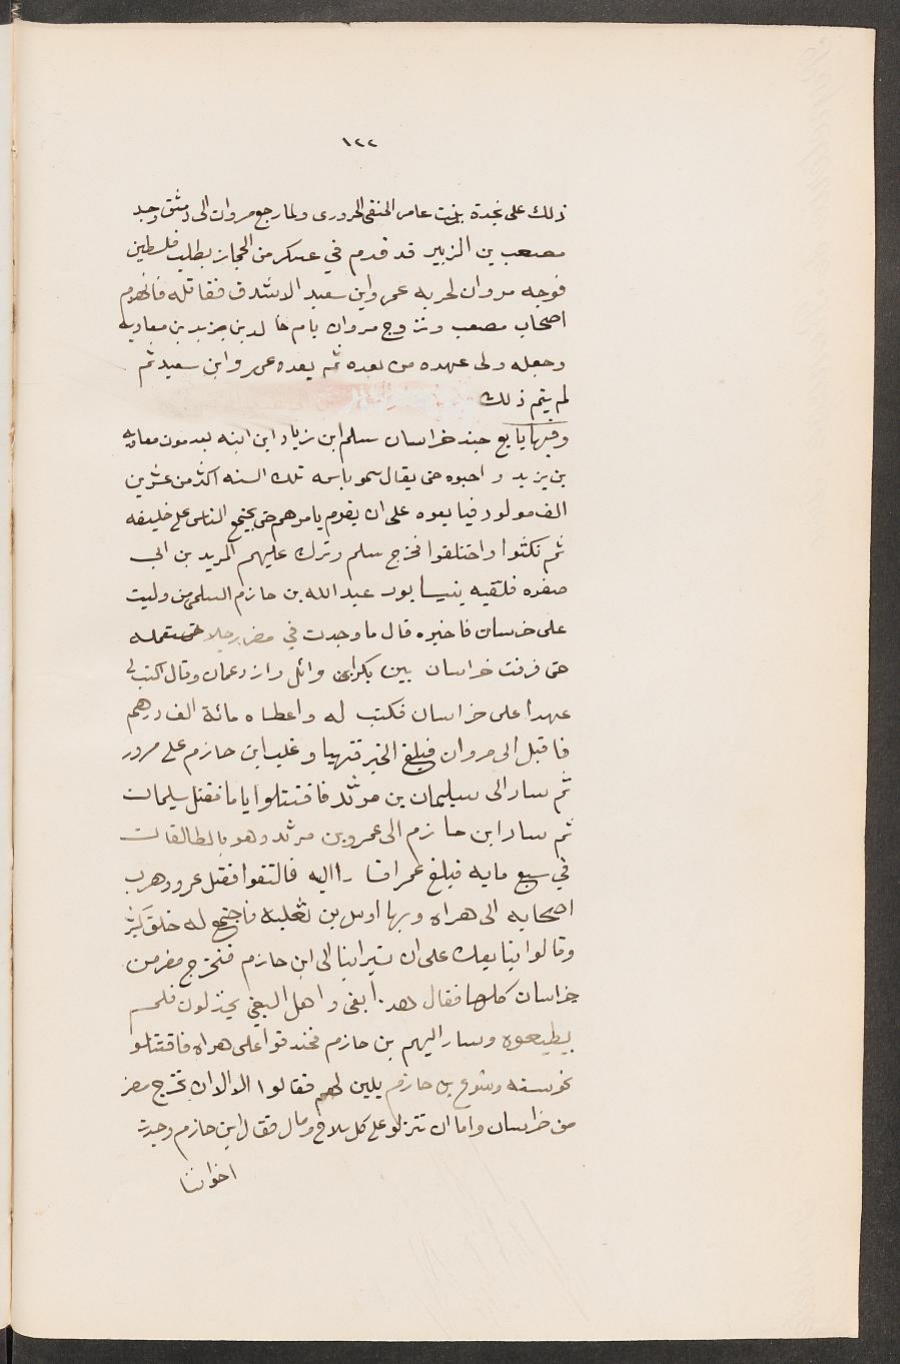 ١٢٢
ذلك على نجدة بنت عامر الحنفى الحرورى ولما رجع مروان الى دمشق وجد
مصعب بن الزبير قد قدم في عسكر من الحجاز يطلب فلسطين
فوجه مروان لحربه عمر وابن سعيد الاشدق فقاتله فانهزم
اصحاب مصعب وتزوج مروان بام خالد بن يزيد بن معاويه
وجعله ولى عهده من بعده ثم بعده عمر وابن سعيد ثم
لم يتم ذلك
وفيها بايع جند خراسان سلم ابن زياد ابن ابيه بعد موت معاويه
بن يزيد واحبوه حتى يقال سمو باسمه تلك السنه اكثر من عشرين
الف مولود فبايعوه على ان يقوم بامرهم حتى يجتمع الناس على خليفه
ثم نكثوا واختلفوا فخرج سلم وترك عليهم المريد بن ابى
صفره فلقيه بنيسابور عبد الله بن حازم السلمى من وليت
على خرسان فاخبره قال ما وجدت في مضر رجلا حتى
حتى فرقت خراسان بين بكر ابن وائل وازد عمان وقال اكتب لى
عهدا على خراسان فكتب له واعطاه مائة الف درهم
فاقبل الى مروان فبلغ الخبر فتهيا وغلب ابن حازم على مرور
ثم سار الى سيليمان بن مرثد فاقتتلوا ياما فقتل سليمان
ثم سار ابن حازم الى عمرو بن مرثد وهو بالطالقان
في سبع مايه فبلغ عمر اقا را اليه فالتقوا فقتل عرو وهرب
اصحابه الى هراه وبها اوس بن ثعلبه فاجتمع له خلق كثير
وقالوا نبايعك على ان تسير بنا الى ابن حازم فنخرج مضر من
خراسان كلها فقال هد ابغى واهل البغى يخذلون فلم
يطيعوه وسار اليهم بن حازم فخندقوا على هراه فاقتتلو
نحو سنه وشرع بن حازم يلين لهم فقالوا الا ان تخرج مضر
من خراسان واما ان تنزلو على كل سلاح ومال فقال ابن حازم وجدت
اخواننا